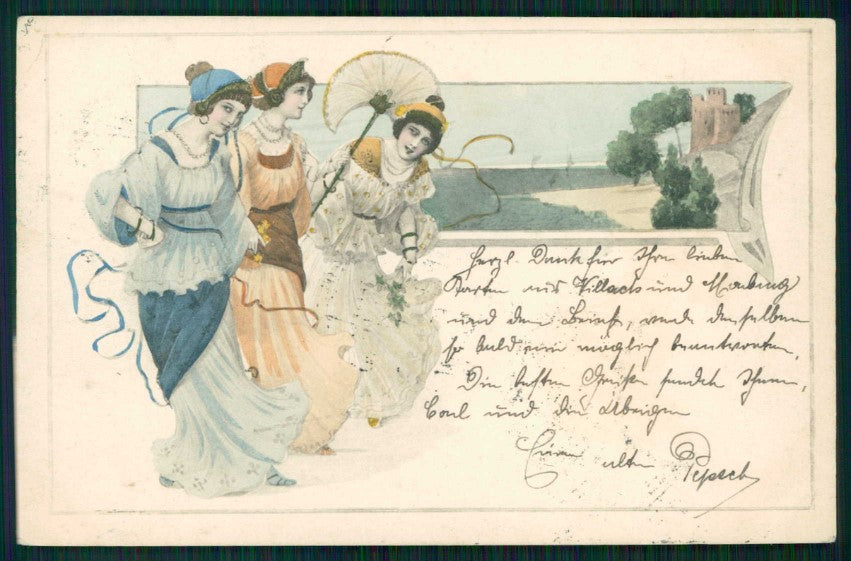 Herzl. Dank für Ihre lieben
Karten aus Villach und
und den Brief, werde denselben
so bald wie möglich beantworten.
Die besten Grüße sendet Ihnen,
und die Übrigen
Euren alten Pepsch